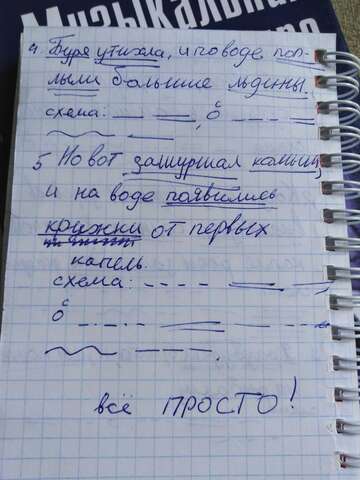 Музыкальн
4 Буря утихла, и по воде поп-
лыли большие льдины.
схема:
5 Но вот зашуршал камыш,
и на воде появились
кружки от первых
капель.
схема:
всё ПРОСТО!